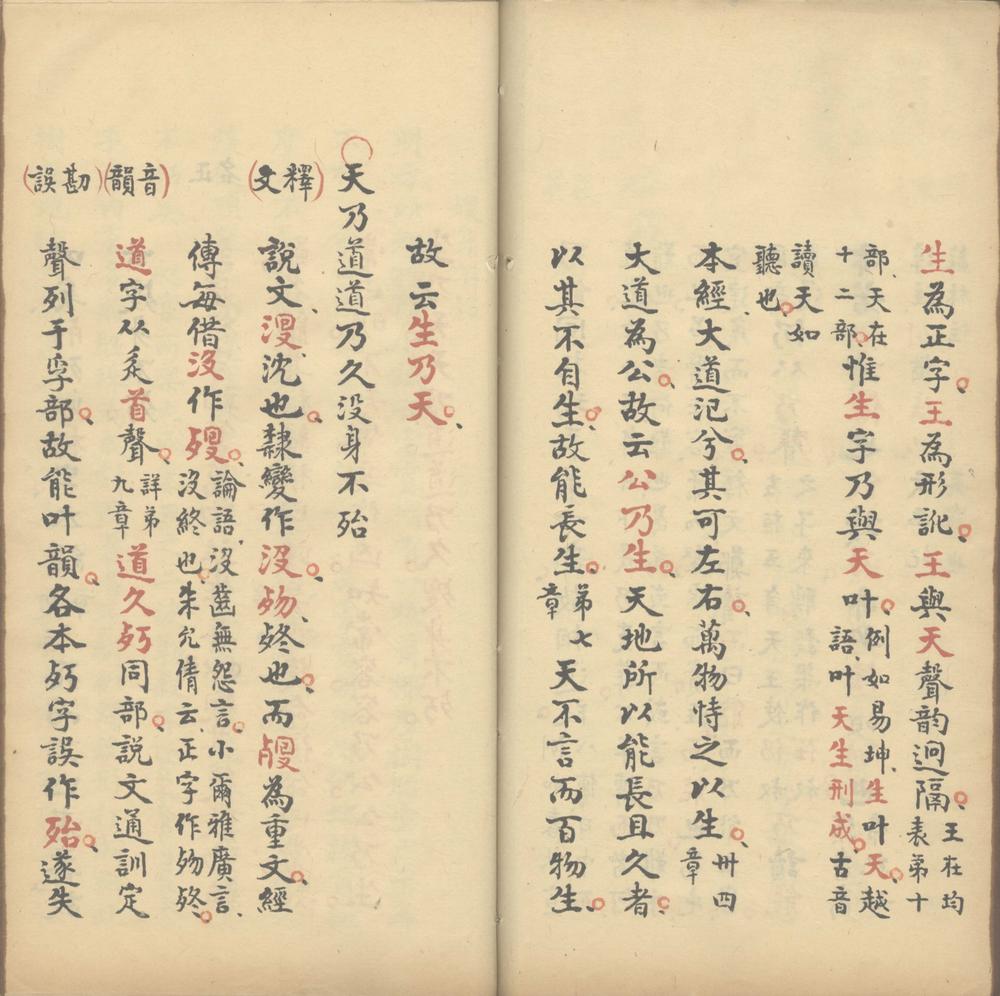 生為正字王為形訛王與天聲韵迥隔王在均表第十
部天在十二部惟生字乃與天叶例如易坤生叶天越語叶天生刑成古音
讀天如聽也
本經大道汜兮其可左右萬物恃之以生卅四章
大道為公故云公乃生天地所以能長且久者
以其不自生故能長生第七章天不言而百物生
故云生乃天
天乃道道乃久没身不殆
釋文
說文溲沈也隸變作没歾終也而㱳為重文經
傳每借没作㱳論語没齒無怨言小爾雅廣言没終也朱允倩云正字作歾終
音韻
道字从辵首聲詳第九章道久歹同部說文通訓定
勘誤
聲列于孚部故能叶韻各本歹字誤作殆遂失